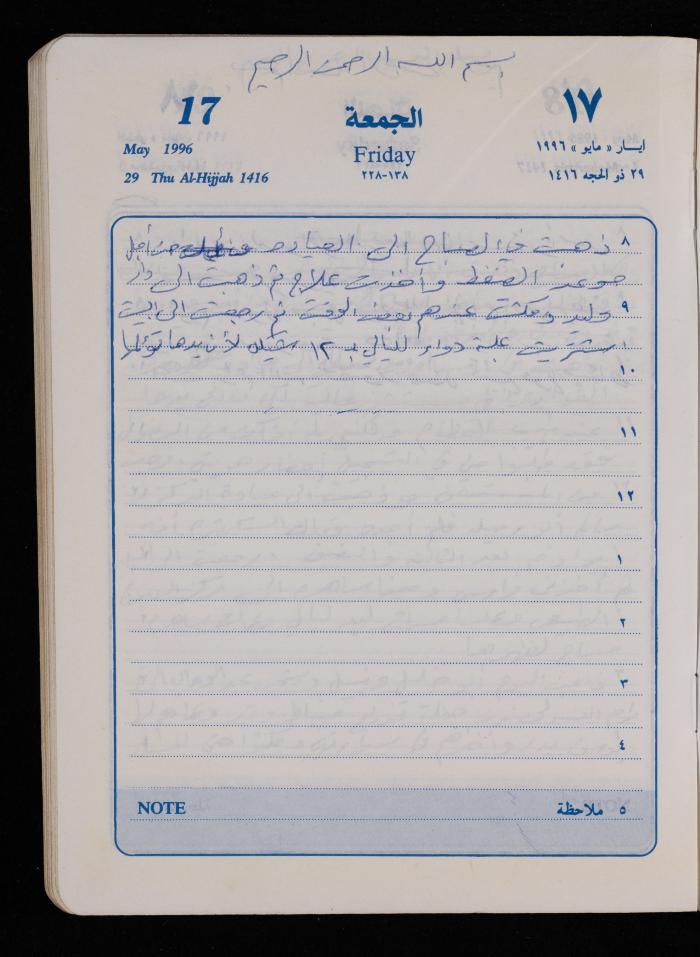 بسم الله الرحمن الرحيم
17 الجمعة ١٧
May 1996 Friday ايـار « مايو » ١٩٩٦
29 Thu Al-Hijjah 1416 ١٣٨-٢٢٨ ٢٩ ذو الحجه ١٤١٦
٨ ذهبت في الصباح الى العياده من أجل
موعد الضغط وأخذت علاج ثم ذهبت الى دار
٩ وليد ومكثت عندهم بعض الوقت ثم رجعت الى البيت
اشتريت علبة دواء لليالي بـ ١٢ شيكل لأن يدها تؤلمها
١٠
١١
١٢
١
٢
٣
٤
NOTE ٥ ملاحظة